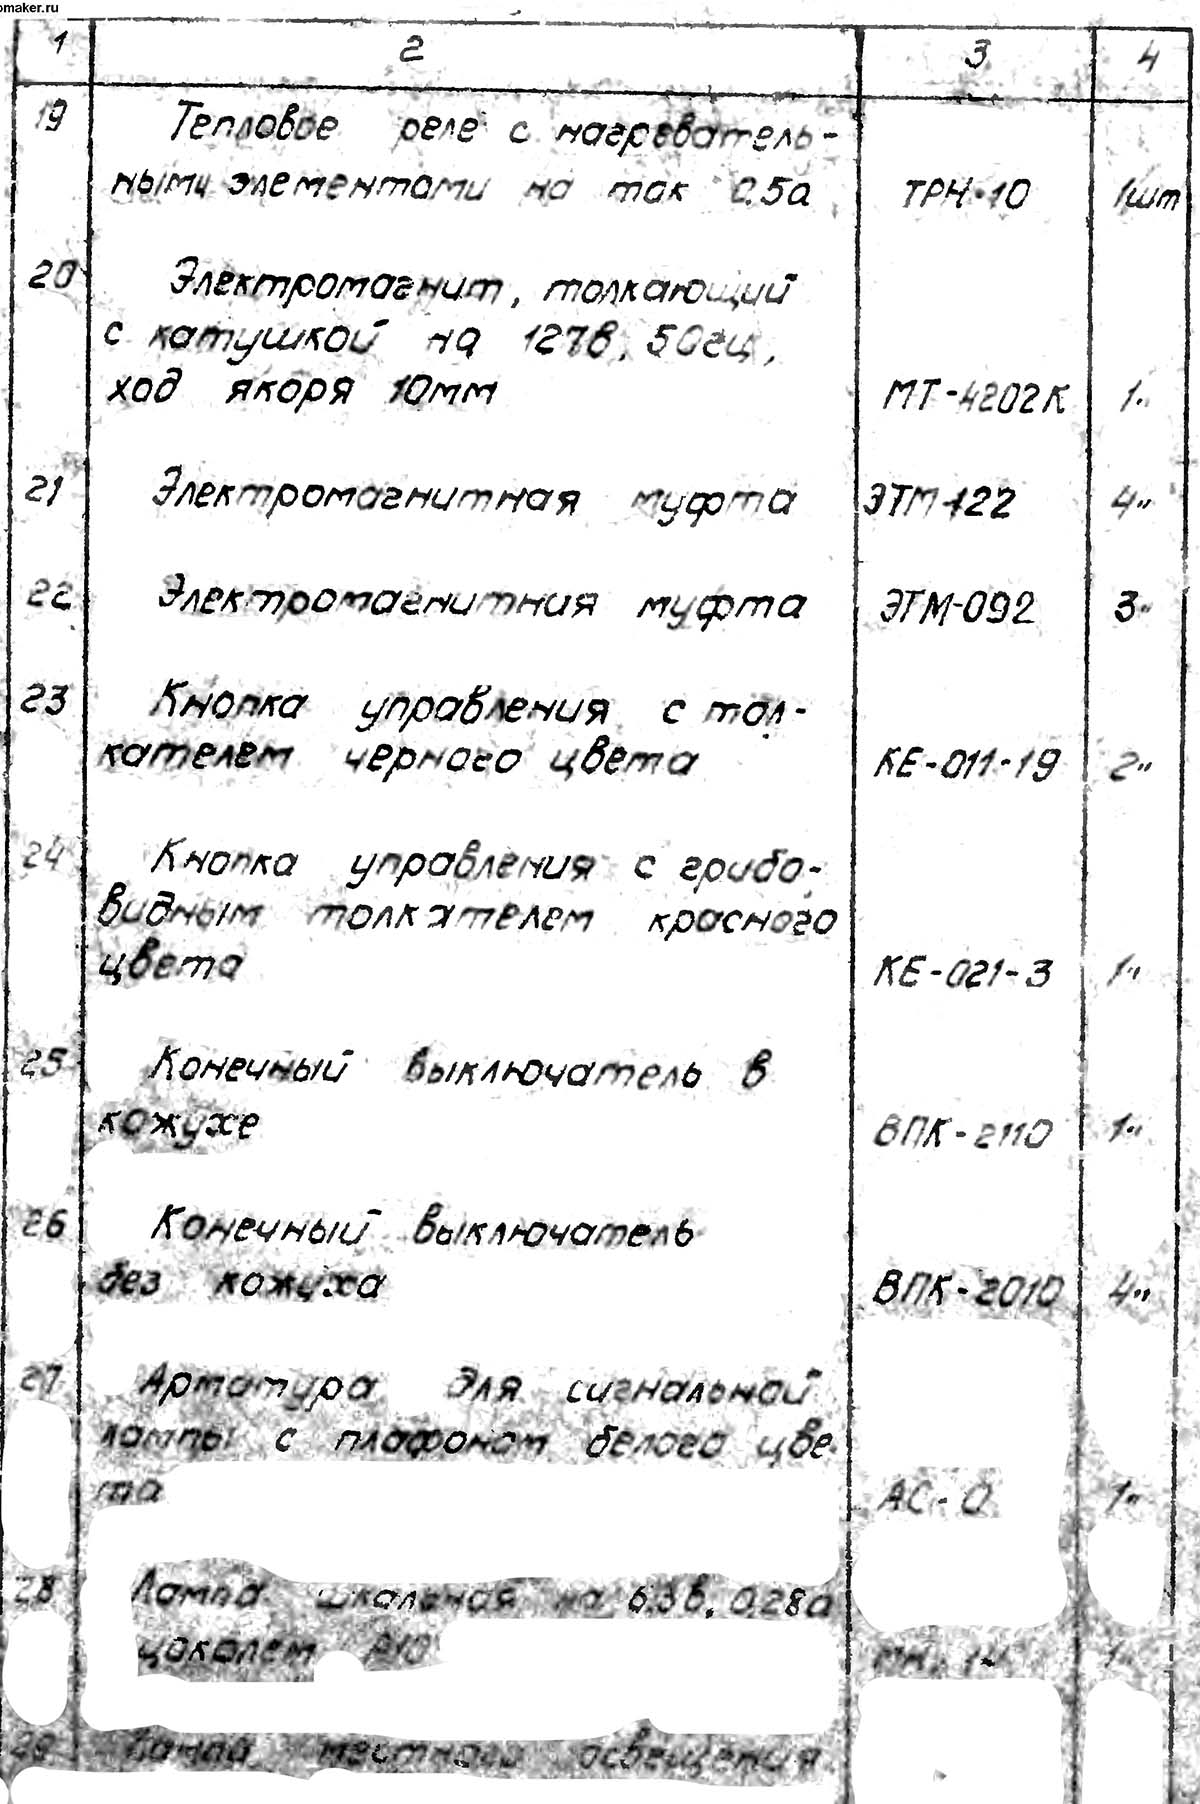 omaker.ru
1 2 3 4
19 Тепловое реле с нагреватель-
ными элементами на ток 0.5а ТРН-10 1шт
20 Электромагнит, толкающий
с катушкой на 127в, 50гц,
ход якоря 10мм МТ-4202К 1"
21 Электромагнитная муфта ЭТМ-122 4"
22 Электромагнитная муфта ЭТМ-092 3"
23 Кнопка управления с тол-
кателем черного цвета КЕ-011-19 2"
24 Кнопка управления с грибо-
видным толкателем красного
цвета КЕ-021-3 1"
25 Конечный выключатель в
кожухе ВПК-2110 1"
26 Конечный выключатель
без кожуха ВПК-2010 4"
27 Арматура для сигнальной
лампы с плафоном белого цве
та АС-0 1"
28 Лампа шкальная на 6.3в, 0.28а
цоколем 1"
29 местного освещения